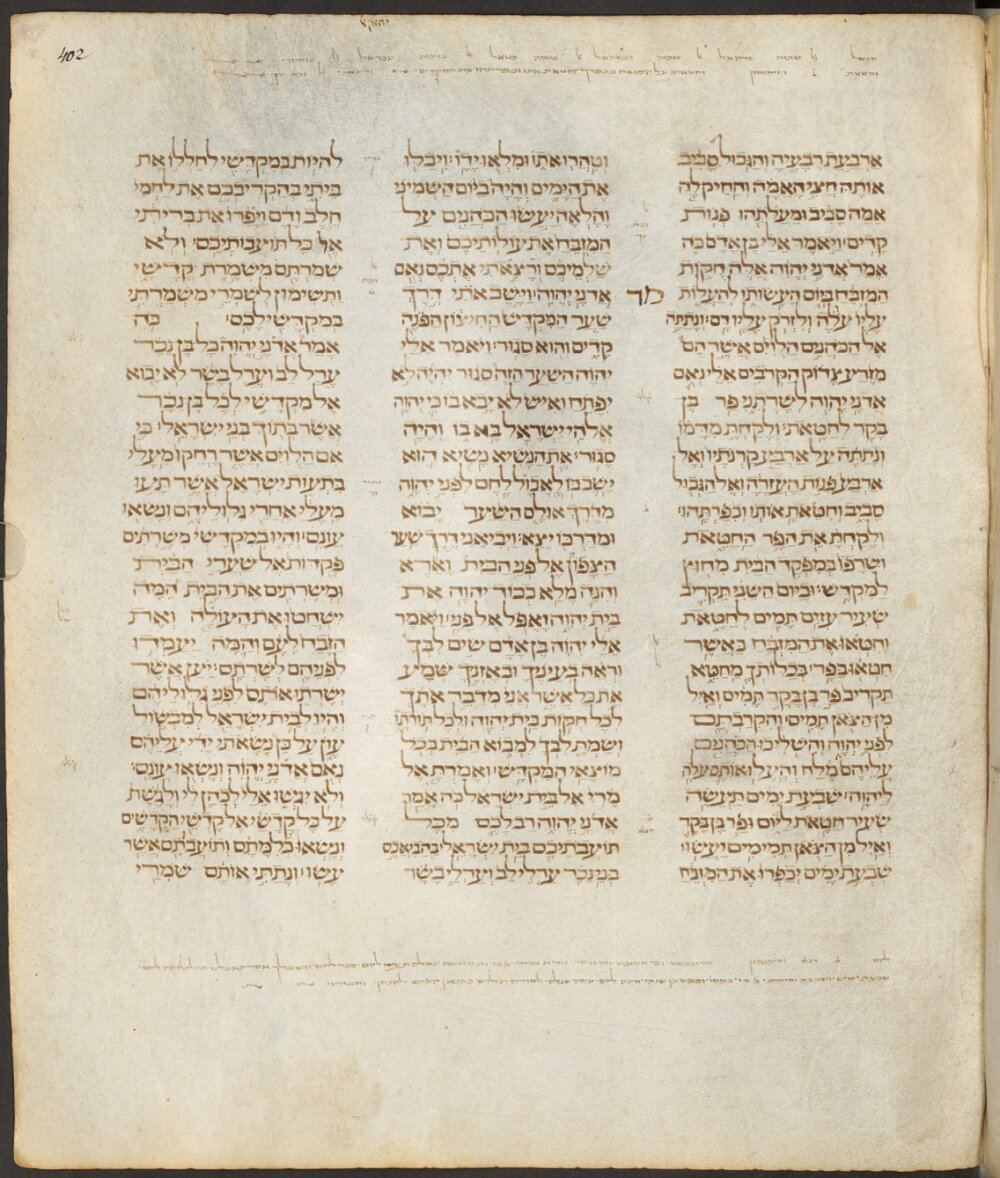 יחזקל
402
ארבעת רבעיה והגבול סביב
אותה חצי האמה והחיק לה
אמה סביב ומעלתהו פנות
קדים׃ ויאמר אלי בן אדם כה
אמר אדני יהוה אלה חקות
המזבח ביום העשותו להעלות
עליו עלה ולזרק עליו דם׃ ונתתה
אל הכהנים הלוים אשר הם
מזרע צדוק הקרבים אלי נאם
אדני יהוה לשרתני פר בן
בקר לחטאת׃ ולקחת מדמו
ונתתה על ארבע קרנתיו ואל
ארבע פנות העזרה ואל הגבול
סביב וחטאת אותו וכפרתהו׃
ולקחת את הפר החטאת
ושרפו במפקד הבית מחוץ
למקדש׃ וביום השני תקריב
שעיר עזים תמים לחטאת
וחטאו את המזבח כאשר
חטאו בפר׃ בכלותך מחטא
תקריב פר בן בקר תמים ואיל
מן הצאן תמים׃ והקרבתם
לפני יהוה והשליכו הכהנים
עליהם מלח והעלו אותם עלה
ליהוה׃ שבעת ימים תעשה
שעיר חטאת ליום ופר בן בקר
ואיל מן הצאן תמימים יעשו׃
שבעת ימים יכפרו את המזבח
וטהרו אתו ומלאו ידו׃ ויכלו
את הימים והיה ביום השמיני
והלאה יעשו הכהנים על
המזבח את עולותיכם ואת
שלמיכם ורצאתי אתכם נאם
אדני יהוה׃ וישב אתי דרך
מד
שער המקדש החיצון הפנה
קדים והוא סגור׃ ויאמר אלי
יהוה השער הזה סגור יהיה לא
יפתח ואיש לא יבא בו כי יהוה
אלהי ישראל בא בו והיה
סגור׃ את הנשיא נשיא הוא
ישב בו לאכול לחם לפני יהוה
מדרך אולם השער יבוא
ומדרכו יצא׃ ויביאני דרך שער
הצפון אל פני הבית וארא
והנה מלא כבוד יהוה את
בית יהוה ואפל אל פני׃ ויאמר
אלי יהוה בן אדם שים לבך
וראה בעיניך ובאזניך שמע
את כל אשר אני מדבר אתך
לכל חקות בית יהוה ולכל תורתו
ושמת לבך למבוא הבית בכל
מוצאי המקדש׃ ואמרת אל
מרי אל בית ישראל כה אמר
אדני יהוה רב לכם מכל
תועבתיכם בית ישראל׃ בהביאכם
בני נכר ערלי לב וערלי בשר
להיות במקדשי לחללו את
ביתי בהקריבכם את לחמי
חלב ודם ויפרו את בריתי
אל כל תועבותיכם׃ ולא
שמרתם משמרת קדשי
ותשימון לשמרי משמרתי
במקדשי לכם׃ כה
אמר אדני יהוה כל בן נכר
ערל לב וערל בשר לא יבוא
אל מקדשי לכל בן נכר
אשר בתוך בני ישראל׃ כי
אם הלוים אשר רחקו מעלי
בתעות ישראל אשר תעו
מעלי אחרי גלוליהם ונשאו
עונם׃ והיו במקדשי משרתים
פקדות אל שערי הבית
ומשרתים את הבית המה
ישחטו את העולה ואת
הזבח לעם והמה יעמדו
לפניהם לשרתם׃ יען אשר
ישרתו אותם לפני גלוליהם
והיו לבית ישראל למכשול
עון על כן נשאתי ידי עליהם
נאם אדני יהוה ונשאו עונם׃
ולא יגשו אלי לכהן לי ולגשת
על כל קדשי אל קדשי הקדשים
ונשאו כלמתם ותועבתם אשר
עשו׃ ונתתי אותם שמרי